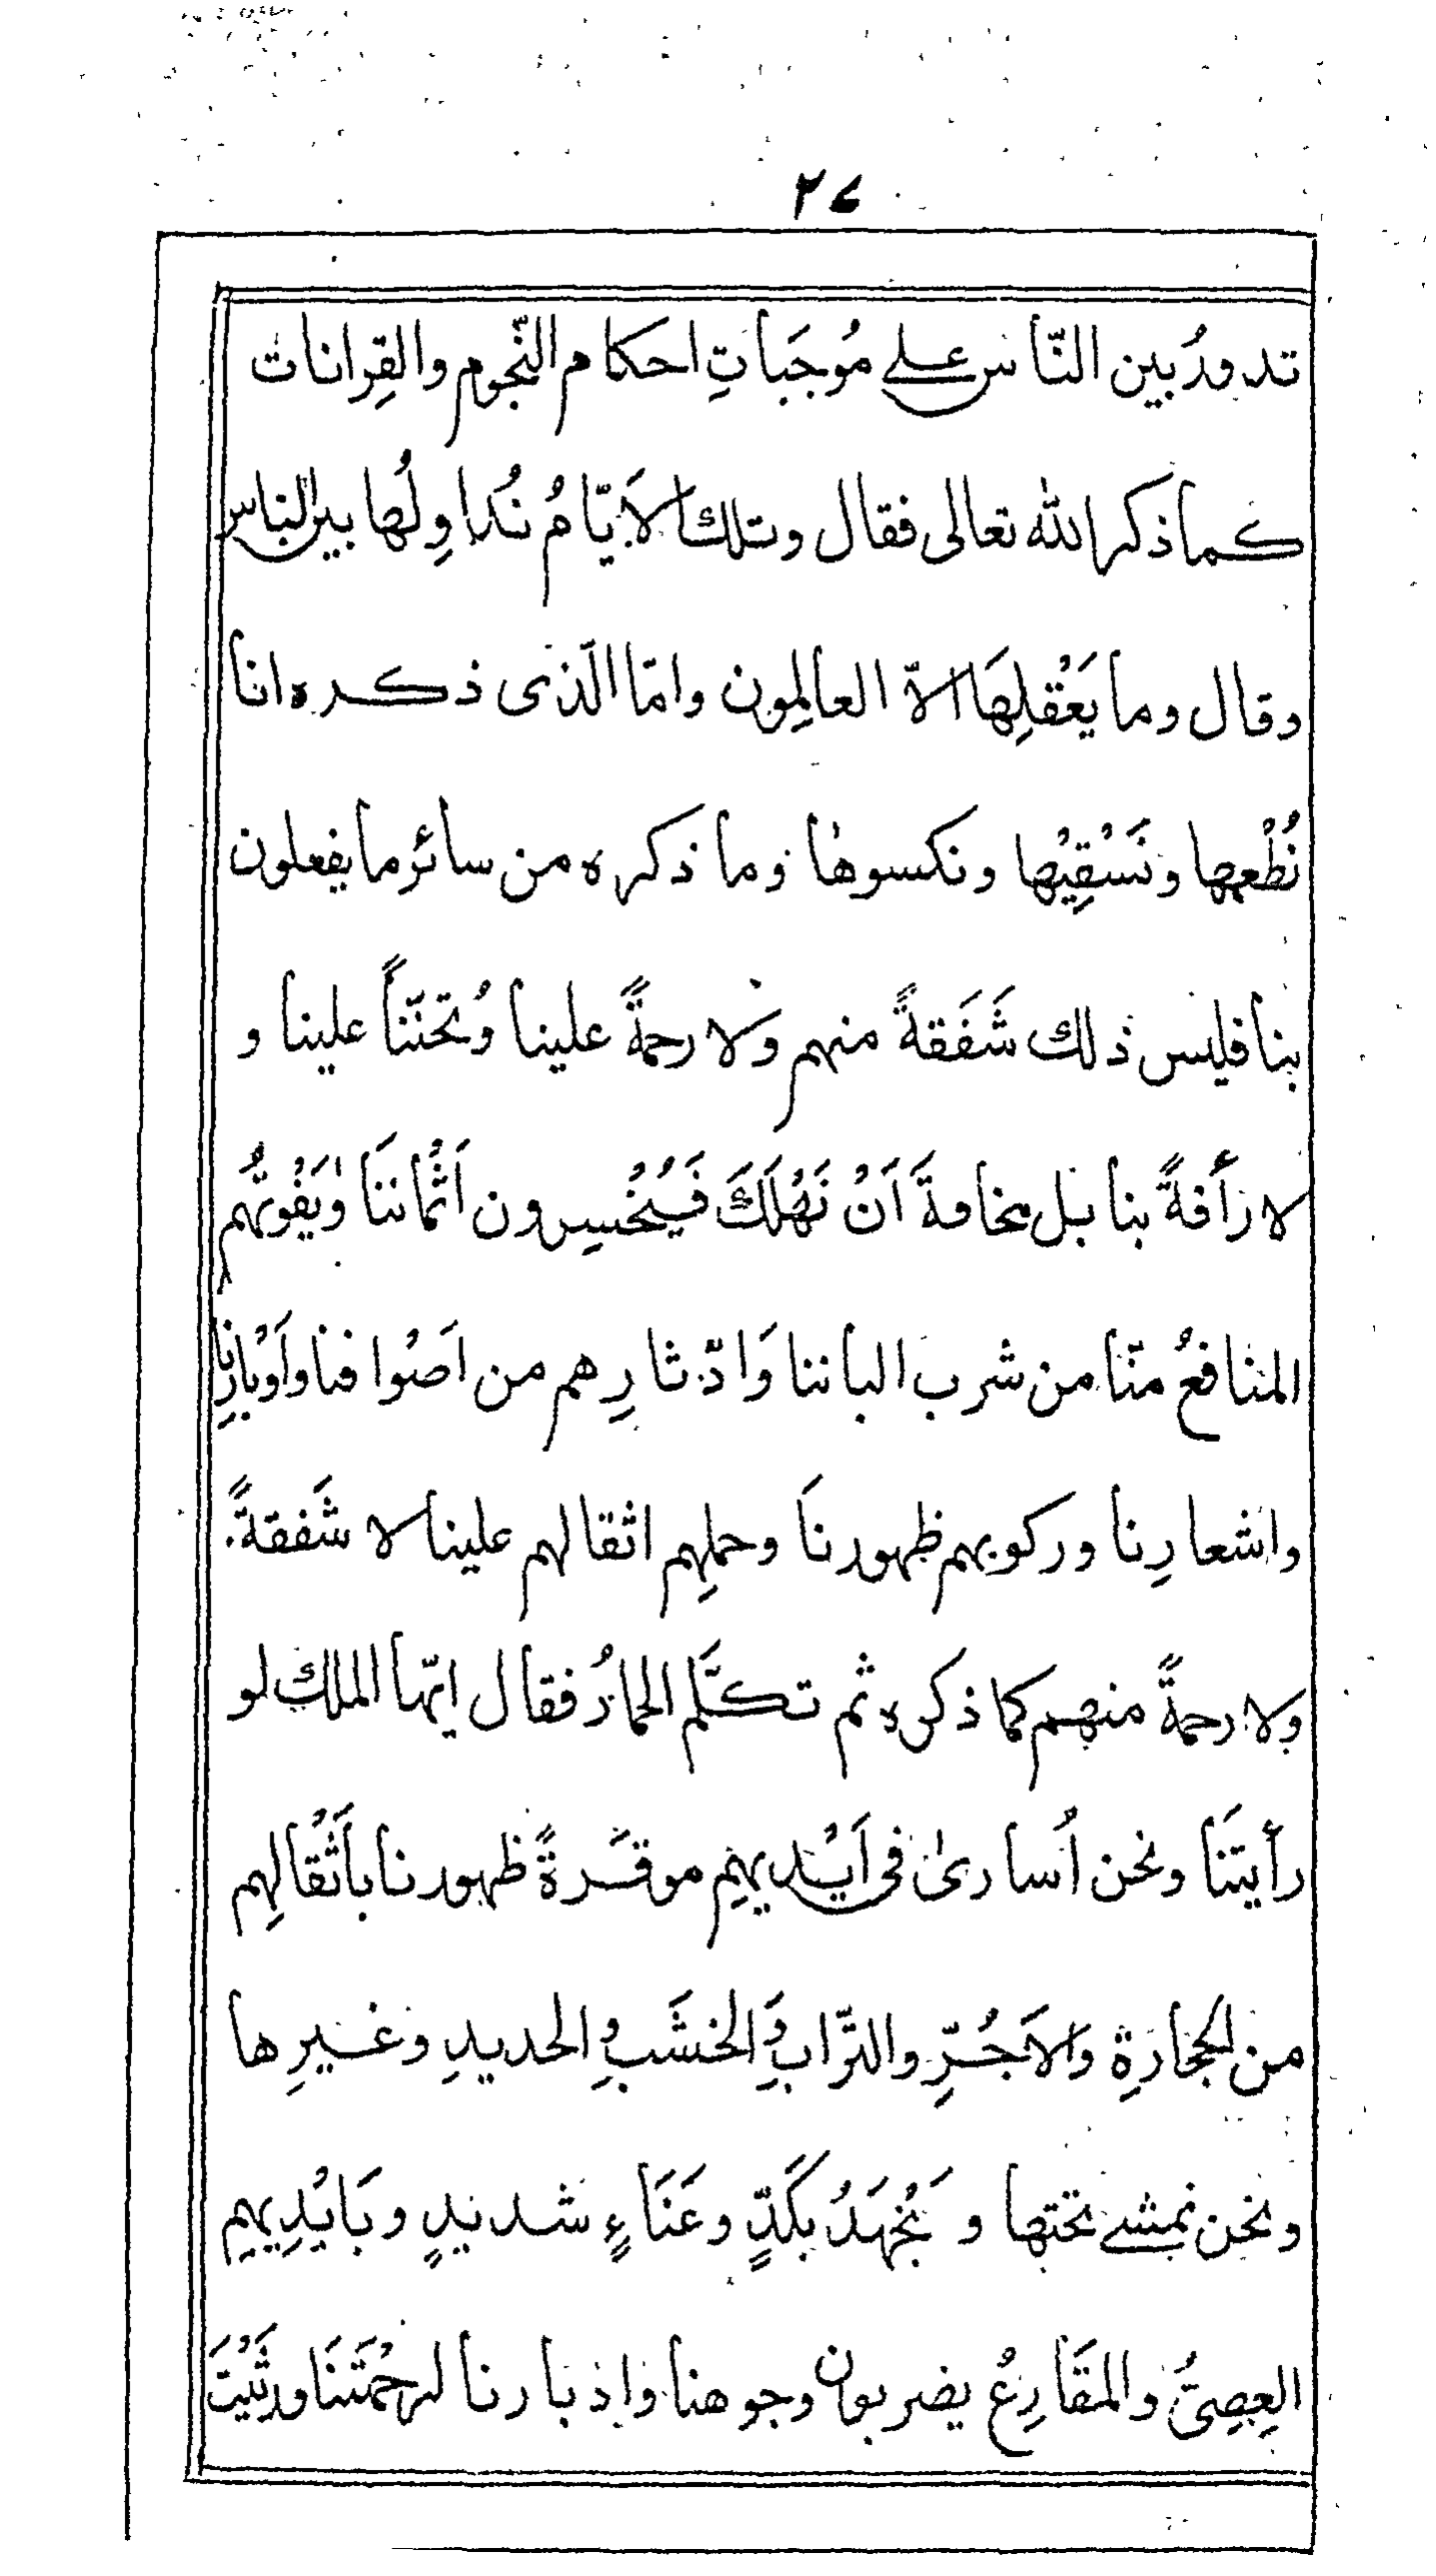 ٢٤
تدورُ بين النّاس على مُوجَباتِ احكام النّجوم والقِرانات
كما ذكر الله تعالى فقال وتلك الاَيّامُ نُداوِلُها بين الناس
وقال وما يَعْقلِهَا الاّ العالِمون وامّا الّذى ذكره انا
نُطْعمها ونَسْقِيْها ونكسوها وما ذكره من سائر ما يفعلون
بنا فليس ذلك شَفَقةً منهم ولا رحمةً علينا وُتحنّناً علينا و
لا رَأفةً بنا بل مخافةَ اَنْ نَهْلَكَ فَيُخْسِرون اَثْماننَا وَيَفْوتُهم
المنافعُ منّا من شرب الباننا وَادّثارِهم من اَصْوافنا واَوْبارِنا
واشعارِنا وركوبهم ظهورنَا وحملِهم اثقالهم علينا لا شَفقةً
ولا رحمةً منهم كما ذكره ثم تكلَّم الحمارُ فقال ايّها الملك لو
رأيتَنا ونحن اُسارىٰ فى اَيْديهِم موقَرةً ظهورنا باَثْقالِهم
من الحجارةِ والاَجُرِّ والتّرابِ والخشَبِ والحديدِ وغيرِها
ونحن نمشے تحتها و نَجْهَدُ بكَدٍّ وعَنَاءٍ شديدٍ وبَايْدِيهِم
العِصِىُّ والمقَارِعُ يضربون وجوهنا واذبارنا لرحْمَتَنَا ورَثَيْتَ